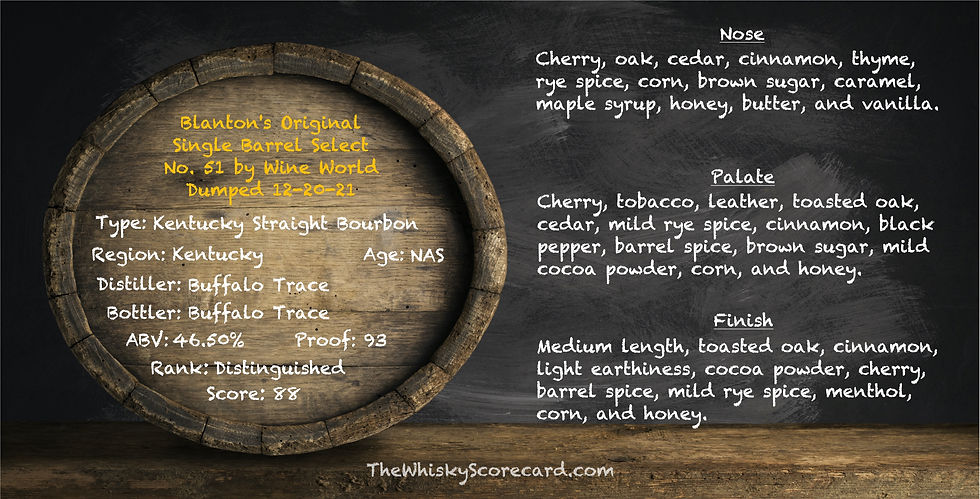 Blanton's Original
Single Barrel Select
No. 51 by Wine World
Dumped 12-20-21
Type: Kentucky Straight Bourbon
Region: Kentucky Age: NAS
Distiller: Buffalo Trace
Bottler: Buffalo Trace
ABV: 46.50% Proof: 93
Rank: Distinguished
Score: 88
Nose
Cherry, oak, cedar, cinnamon, thyme,
rye spice, corn, brown sugar, caramel,
maple syrup, honey, butter, and vanilla.
Palate
Cherry, tobacco, leather, toasted oak,
cedar, mild rye spice, cinnamon, black
pepper, barrel spice, brown sugar, mild
cocoa powder, corn, and honey.
Finish
Medium length, toasted oak, cinnamon,
light earthiness, cocoa powder, cherry,
barrel spice, mild rye spice, menthol,
corn, and honey.
TheWhiskyScorecard.com